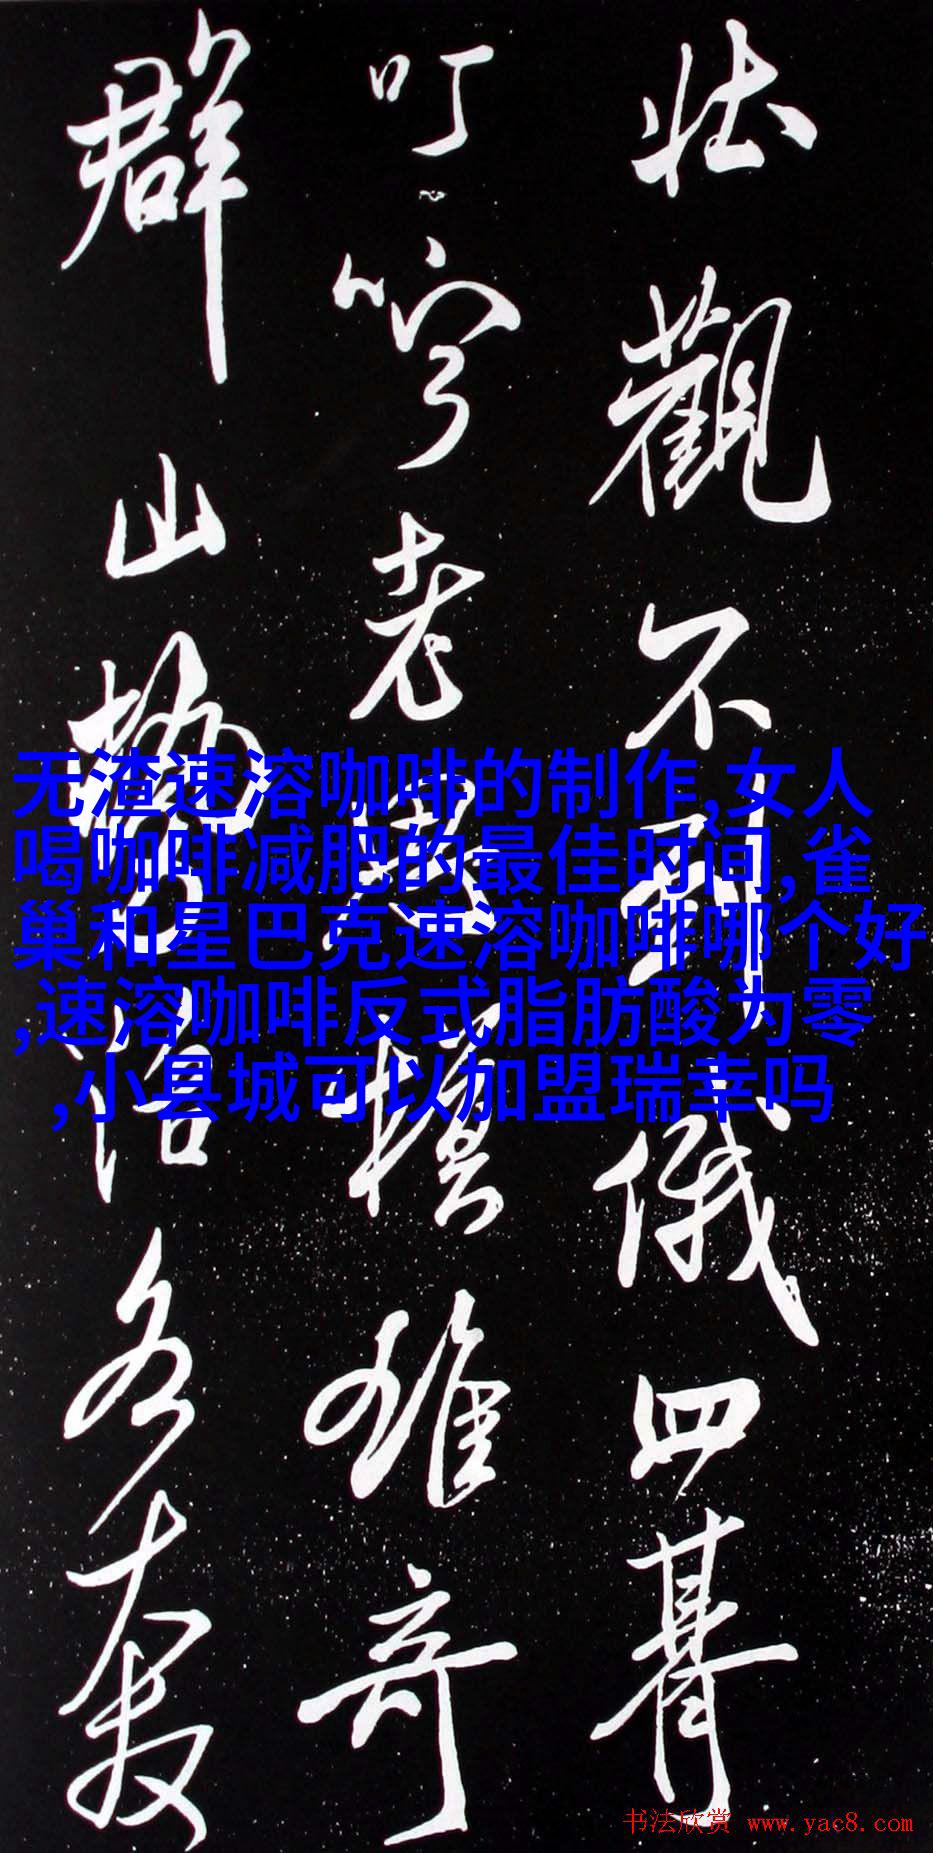 壮觀不到儀四暮
叮寧老思摸雄奇
群山勢
各
无渣速溶咖啡的制作,女人
喝咖啡减肥的最佳时间,雀
巢和星巴克速溶咖啡哪个好
,速溶咖啡反式脂肪酸为零
,小县城可以加盟瑞幸吗
书法欣赏 www.yac8.com